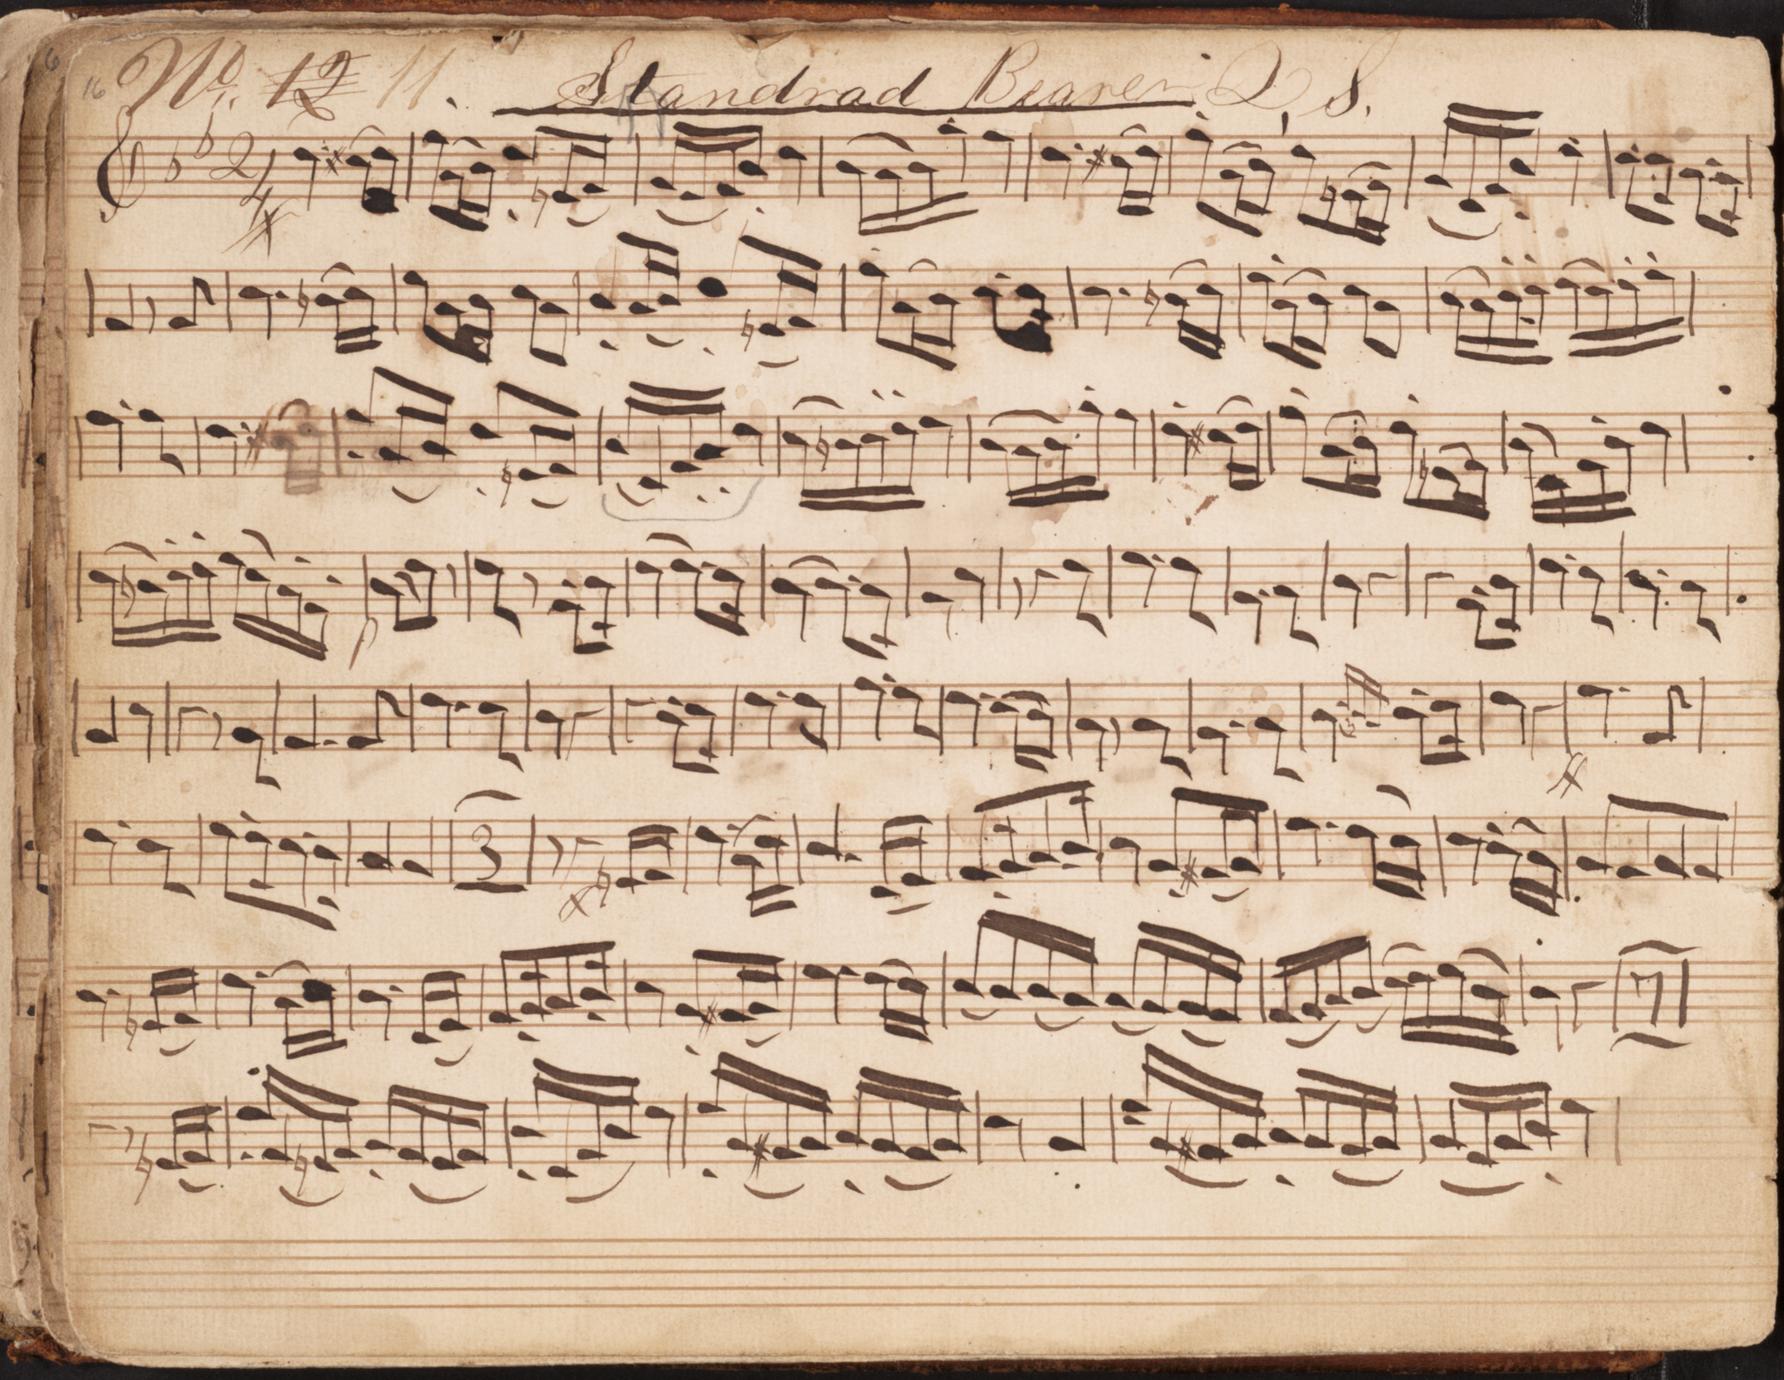 16 No. 12 11. Standrad Bearer Q S.
2
4
3
7